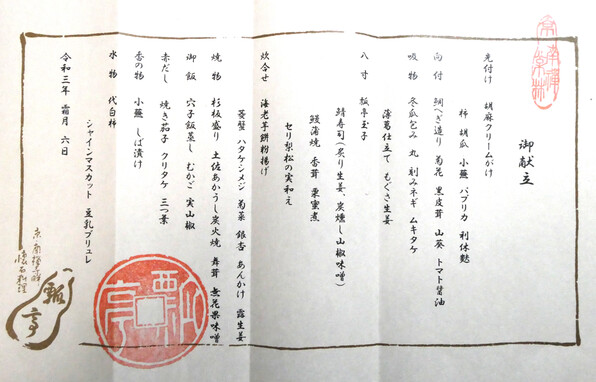 御献立
先付け 胡麻クリームがけ
柿 胡瓜 小蕪 パプリカ 利休麩
向付 鯛へぎ造り 菊花 黒皮茸 山葵 トマト醤油
吸物 冬瓜包み 丸 刻みネギ ムキタケ
薄葛仕立て もぐさ生姜
八寸 瓢亭玉子
鯖寿司(炙り生姜、炙燻し山椒味噌)
鰻蒲焼 香茸 栗蜜煮
セリ梨松の実和え
炊合せ 海老芋餅粉揚げ
菱蟹 ハタケシメジ 菊菜 銀杏 あんかけ 露生姜
焼物 杉板盛り 土佐あかうし炭火焼 舞茸 無花果味噌
御飯 穴子飯蒸し むかご 実山椒
赤だし 焼き茄子 クリタケ 三つ葉
香の物 小蕪 しば漬け
水物 代白柿
シャインマスカット 豆乳ブリュレ
令和三年 霜月 六日
京南禅寺畔
懐石料理
瓢亭
瓢亭